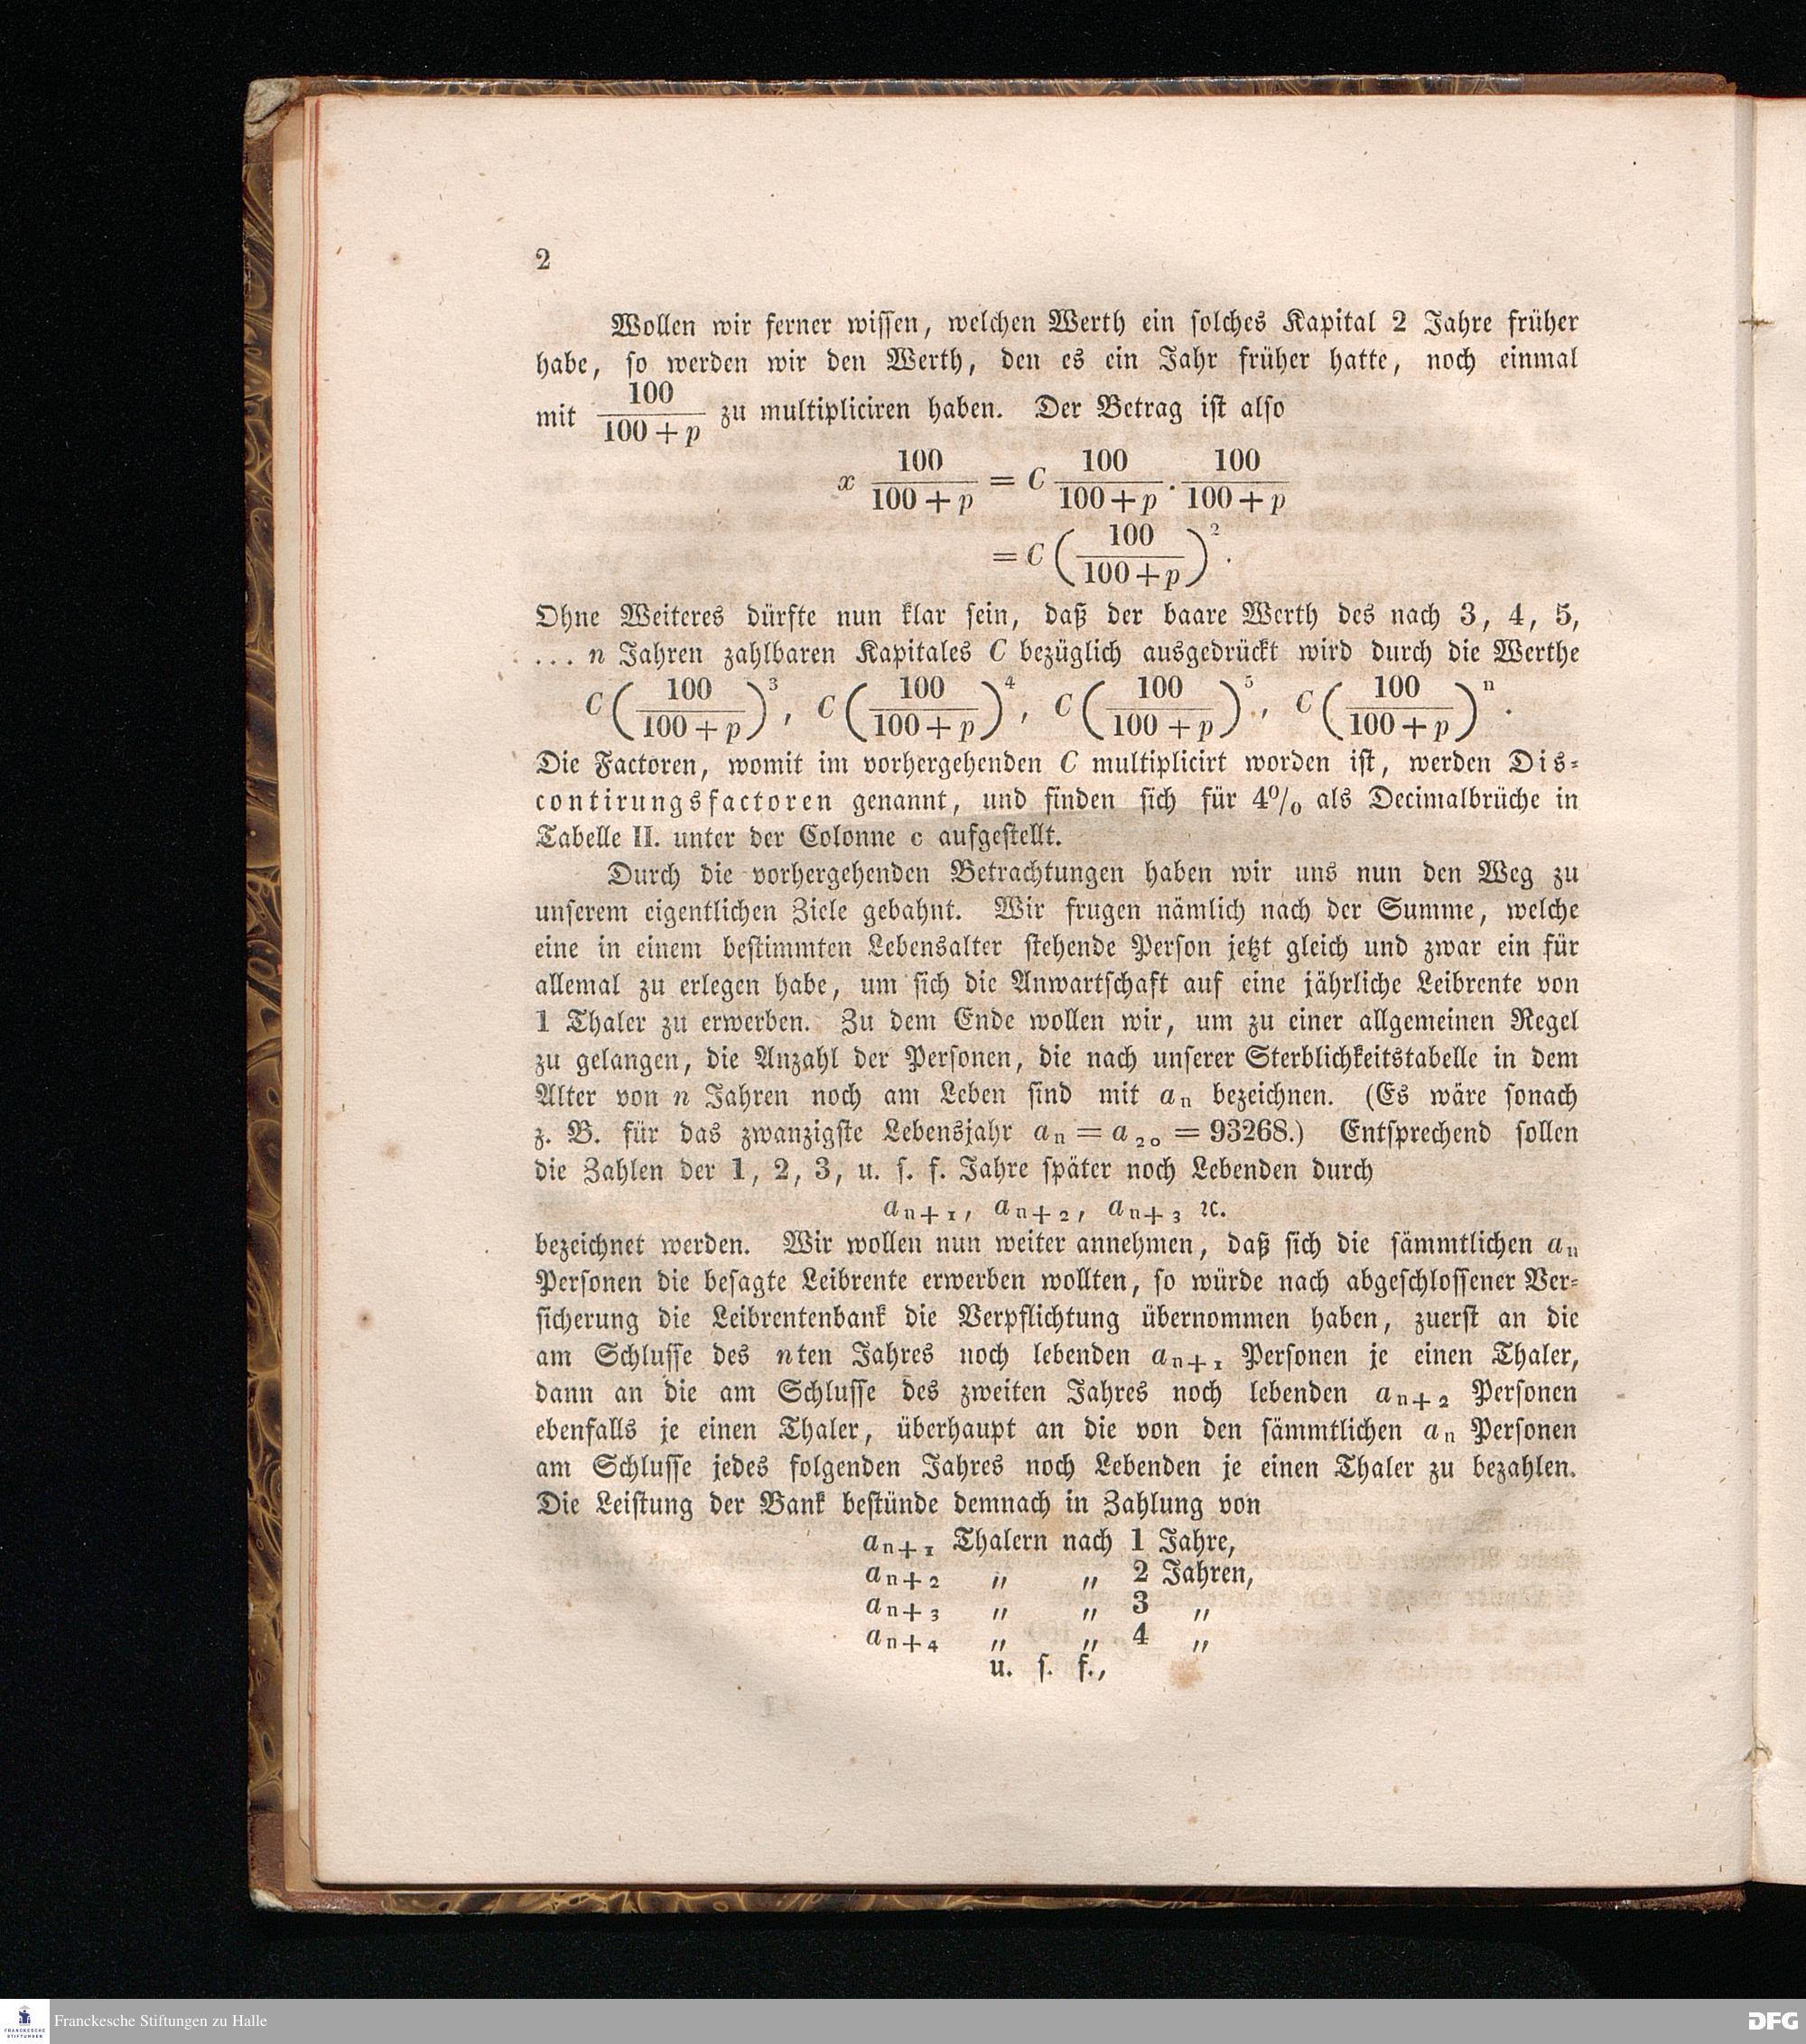 2
Wollen wir ferner wissen, welchen Werth ein solches Kapital 2 Jahre früher
habe, so werden wir den Werth, den es ein Jahr früher hatte, noch einmal
mit 100/(100 + p) zu multipliciren haben. Der Betrag ist also
x 100/(100 + p) = C 100/(100 + p) . 100/(100 + p)
= C (100/(100 + p))².
Ohne Weiteres dürfte nun klar sein, daß der baare Werth des nach 3, 4, 5,
... n Jahren zahlbaren Kapitales C bezüglich ausgedrückt wird durch die Werthe
C (100/(100 + p))³, C (100/(100 + p))⁴, C (100/(100 + p))⁵, C (100/(100 + p))ⁿ.
Die Factoren, womit im vorhergehenden C multiplicirt worden ist, werden Dis-
contirungsfactoren genannt, und finden sich für 4% als Decimalbrüche in
Tabelle II. unter der Colonne c aufgestellt.
Durch die vorhergehenden Betrachtungen haben wir uns nun den Weg zu
unserem eigentlichen Ziele gebahnt. Wir frugen nämlich nach der Summe, welche
eine in einem bestimmten Lebensalter stehende Person jetzt gleich und zwar ein für
allemal zu erlegen habe, um sich die Anwartschaft auf eine jährliche Leibrente von
1 Thaler zu erwerben. Zu dem Ende wollen wir, um zu einer allgemeinen Regel
zu gelangen, die Anzahl der Personen, die nach unserer Sterblichkeitstabelle in dem
Alter von n Jahren noch am Leben sind mit aₙ bezeichnen. (Es wäre sonach
z. B. für das zwanzigste Lebensjahr aₙ = a₂₀ = 93268.) Entsprechend sollen
die Zahlen der 1, 2, 3, u. s. f. Jahre später noch Lebenden durch
aₙ₊₁, aₙ₊₂, aₙ₊₃ ꝛc.
bezeichnet werden. Wir wollen nun weiter annehmen, daß sich die sämmtlichen aₙ
Personen die besagte Leibrente erwerben wollten, so würde nach abgeschlossener Ver-
sicherung die Leibrentenbank die Verpflichtung übernommen haben, zuerst an die
am Schlusse des nten Jahres noch lebenden aₙ₊₁ Personen je einen Thaler,
dann an die am Schlusse des zweiten Jahres noch lebenden aₙ₊₂ Personen
ebenfalls je einen Thaler, überhaupt an die von den sämmtlichen aₙ Personen
am Schlusse jedes folgenden Jahres noch Lebenden je einen Thaler zu bezahlen.
Die Leistung der Bank bestünde demnach in Zahlung von
aₙ₊₁ Thalern nach 1 Jahre,
aₙ₊₂ „ „ 2 Jahren,
aₙ₊₃ „ „ 3 „
aₙ₊₄ „ „ 4 „
u. s. f.,
FRANCKESCHE STIFTUNGEN
Franckesche Stiftungen zu Halle
DFG